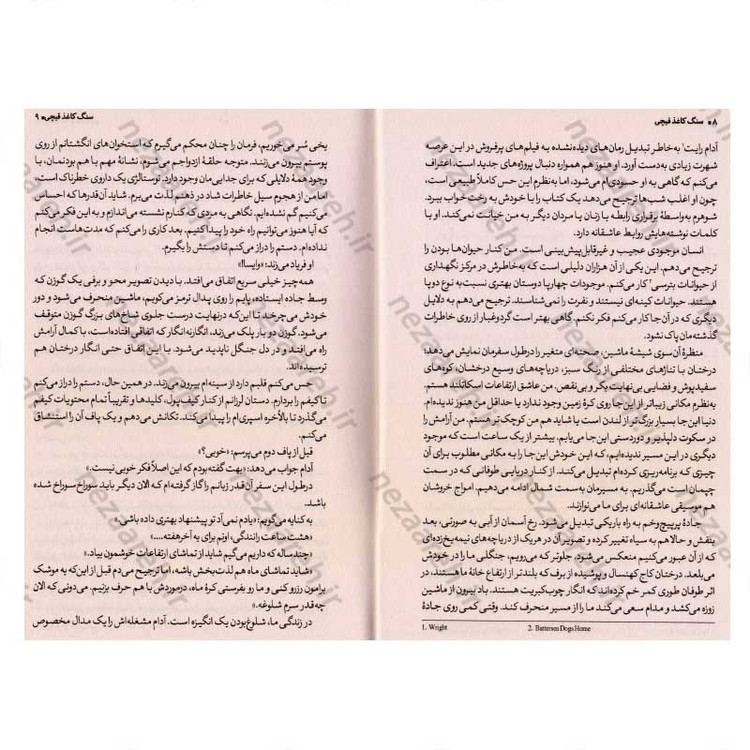 ۸ • سنگ کاغذ قیچی
آدام رایت¹ به‌خاطر تبدیل رمان‌های دیده‌نشده به فیلم‌های پرفروش در این عرصه
شهرت زیادی به‌دست آورد. او هنوز هم همواره دنبال پروژه‌های جدید است. اعتراف
می‌کنم که گاهی به او حسودی‌ام می‌شود، اما به‌نظرم این حس کاملاً طبیعی است،
چون او اغلب شب‌ها ترجیح می‌دهد یک کتاب را با خودش به رخت خواب ببرد.
شوهرم به‌واسطهٔ برقراری رابطه با زنان یا مردان دیگر به من خیانت نمی‌کند. او با
کلمات نوشته‌هایش روابط عاشقانه دارد.
انسان موجودی عجیب و غیرقابل‌پیش‌بینی است. من کنار حیوان‌ها بودن را
ترجیح می‌دهم. این یکی از آن هزاران دلیلی است که به‌خاطرش در مرکز نگهداری
از حیوانات بترسی² کار می‌کنم. موجودات چهارپا دوستان بهتری نسبت‌به نوع دوپا
هستند. حیوانات کینه‌ای نیستند و نفرت را نمی‌شناسند. ترجیح می‌دهم به دلایل
دیگری که در آن‌جا کار می‌کنم فکر نکنم. گاهی بهتر است گردوغبار از روی خاطرات
گذشته‌مان پاک نشود.
منظرهٔ آن‌سوی شیشهٔ ماشین، صحنه‌ای متغیر را درطول سفرمان نمایش می‌دهد؛
درختان با تناژهای مختلفی از رنگ سبز، دریاچه‌های وسیع درخشان، کوه‌های
سفیدپوش و فضایی بی‌نهایت بکر و بی‌نقص. من عاشق ارتفاعات اسکاتلند هستم.
به‌نظرم مکانی زیباتر از این‌جا روی کرهٔ زمین وجود ندارد یا حداقل من هنوز ندیده‌ام.
دنیا این‌جا بسیار بزرگ‌تر از لندن است یا شاید هم من کوچک‌تر هستم. من آرامش را
در سکوت دلپذیر و دوردستی این‌جا می‌یابم. بیشتر از یک ساعت است که موجود
دیگری در این مسیر ندیده‌ایم، که این خودش این‌جا را به مکانی مطلوب برای آن
چیزی که برنامه‌ریزی کرده‌ام تبدیل می‌کند. از کنار دریایی طوفانی که در سمت
چپمان است می‌گذریم. به مسیرمان به‌سمت شمال ادامه می‌دهیم، امواج خروشان
هم موسیقی عاشقانه‌ای برای ما می‌نوازند.
جادهٔ پرپیچ‌وخم به راه باریکی تبدیل می‌شود. رخ آسمان از آبی به صورتی، بعد
بنفش و حالا هم به سیاه تغییر کرده و تصویر آن در هریک از دریاچه‌های نیمه‌یخ‌زده‌ای
که از آن عبور می‌کنیم منعکس می‌شود. جلوتر که می‌رویم، جنگلی ما را در خودش
می‌بلعد. درختان کاج کهنسال و پوشیده از برف که بلندتر از ارتفاع خانهٔ ما هستند، در
اثر طوفان طوری کمر خم کرده‌اند که انگار چوب‌کبریت هستند. باد بیرون از ماشین
زوزه می‌کشد و مدام سعی می‌کند ما را از مسیر منحرف کند. وقتی کمی روی جادهٔ
1. Wright 2. Battersea Dogs Home
سنگ کاغذ قیچی • ۹
یخی سُر می‌خوریم، فرمان را چنان محکم می‌گیرم که استخوان‌های انگشتانم از روی
پوستم بیرون می‌زنند. متوجه حلقهٔ ازدواجم می‌شوم. نشانهٔ مهم با هم بودنمان، با
وجود همهٔ دلایلی که برای جدایی‌مان وجود دارد. نوستالژی یک داروی خطرناک است،
اما من از هجوم سیل خاطرات شاد در ذهنم لذت می‌برم. شاید آن‌قدرها که احساس
می‌کنیم گم نشده‌ایم. نگاهی به مردی که کنارم نشسته می‌اندازم و به این فکر می‌کنم
که آیا هنوز می‌توانیم راه خود را پیدا کنیم. بعد کاری را می‌کنم که مدت‌هاست انجام
نداده‌ام. دستم را دراز می‌کنم تا دستش را بگیرم.
او فریاد می‌زند: «وایسا!»
همه‌چیز خیلی سریع اتفاق می‌افتد. با دیدن تصویر محو و برفی یک گوزن که
وسط جاده ایستاده، پایم را روی پدال ترمز می‌کوبم، ماشین منحرف می‌شود و دور
خودش می‌چرخد تا این‌که درنهایت درست جلوی شاخ‌های بزرگ گوزن متوقف
می‌شود. گوزن دو بار پلک می‌زند، انگارنه‌انگار که اتفاقی افتاده‌است، با کمال آرامش
راه می‌افتد و در دل جنگل ناپدید می‌شود. با این اتفاق حتی انگار درختان هم
ترسیده‌اند.
حس می‌کنم قلبم دارد از سینه‌ام بیرون می‌زند. در همین حال، دستم را دراز می‌کنم
تا کیفم را بردارم. دستان لرزانم از کنار کیف‌پول، کلیدها و تقریباً تمام محتویات کیفم
می‌گذرد تا بالأخره اسپری‌ام را پیدا می‌کند. تکانش می‌دهم و یک پاف آن را استنشاق
می‌کنم.
قبل از پاف دوم می‌پرسم: «خوبی؟»
آدام جواب می‌دهد: «بهت گفته بودم که این اصلاً فکر خوبی نیست.»
درطول این سفر آن قدر زبانم را گاز گرفته‌ام که الان دیگر باید سوراخ سوراخ شده
باشد.
به کنایه می‌گویم: «یادم نمی‌آد تو پیشنهاد بهتری داده باشی.»
«هشت ساعت رانندگی، اونم برای یه آخرهفته....»
«چندساله که داریم می‌گیم شاید از تماشای ارتفاعات خوشمون بیاد.»
«شاید تماشای ماه هم لذت‌بخش باشه، اما ترجیح می‌دم قبل از این‌که یه موشک
برامون رزرو کنی و ما رو بفرستی کرهٔ ماه، درموردش با هم حرف بزنیم. می‌دونی که الان
چه‌قدر سرم شلوغه.»
در زندگی ما، شلوغ‌بودن یک انگیزه است. آدام مشغله‌اش را یک مدال مخصوص
nezaaleh.ir